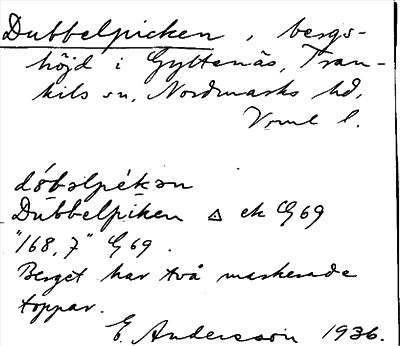 Dubbelpicken, bergs-
höjd i Gyltenäs, Tran-
kils sn, Nordmarks hd,
Vrml l.
dóbəlpékən
Dubbelpiken △ ek G69
"168,7" G69.
Berget har två markerade
toppar.
E. Andersson 1936.